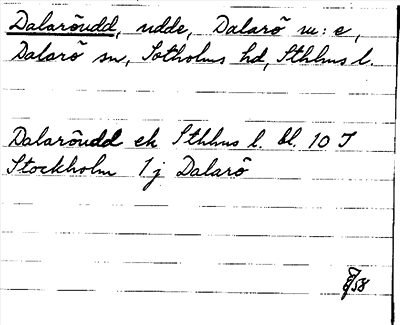 Dalaröudd, udde, Dalarö m:e,
Dalarö sn, Sotholms hd, Sthlms l.
Dalaröudd ek Sthlms l. bl. 10 J
Stockholm 1 j Dalarö
58